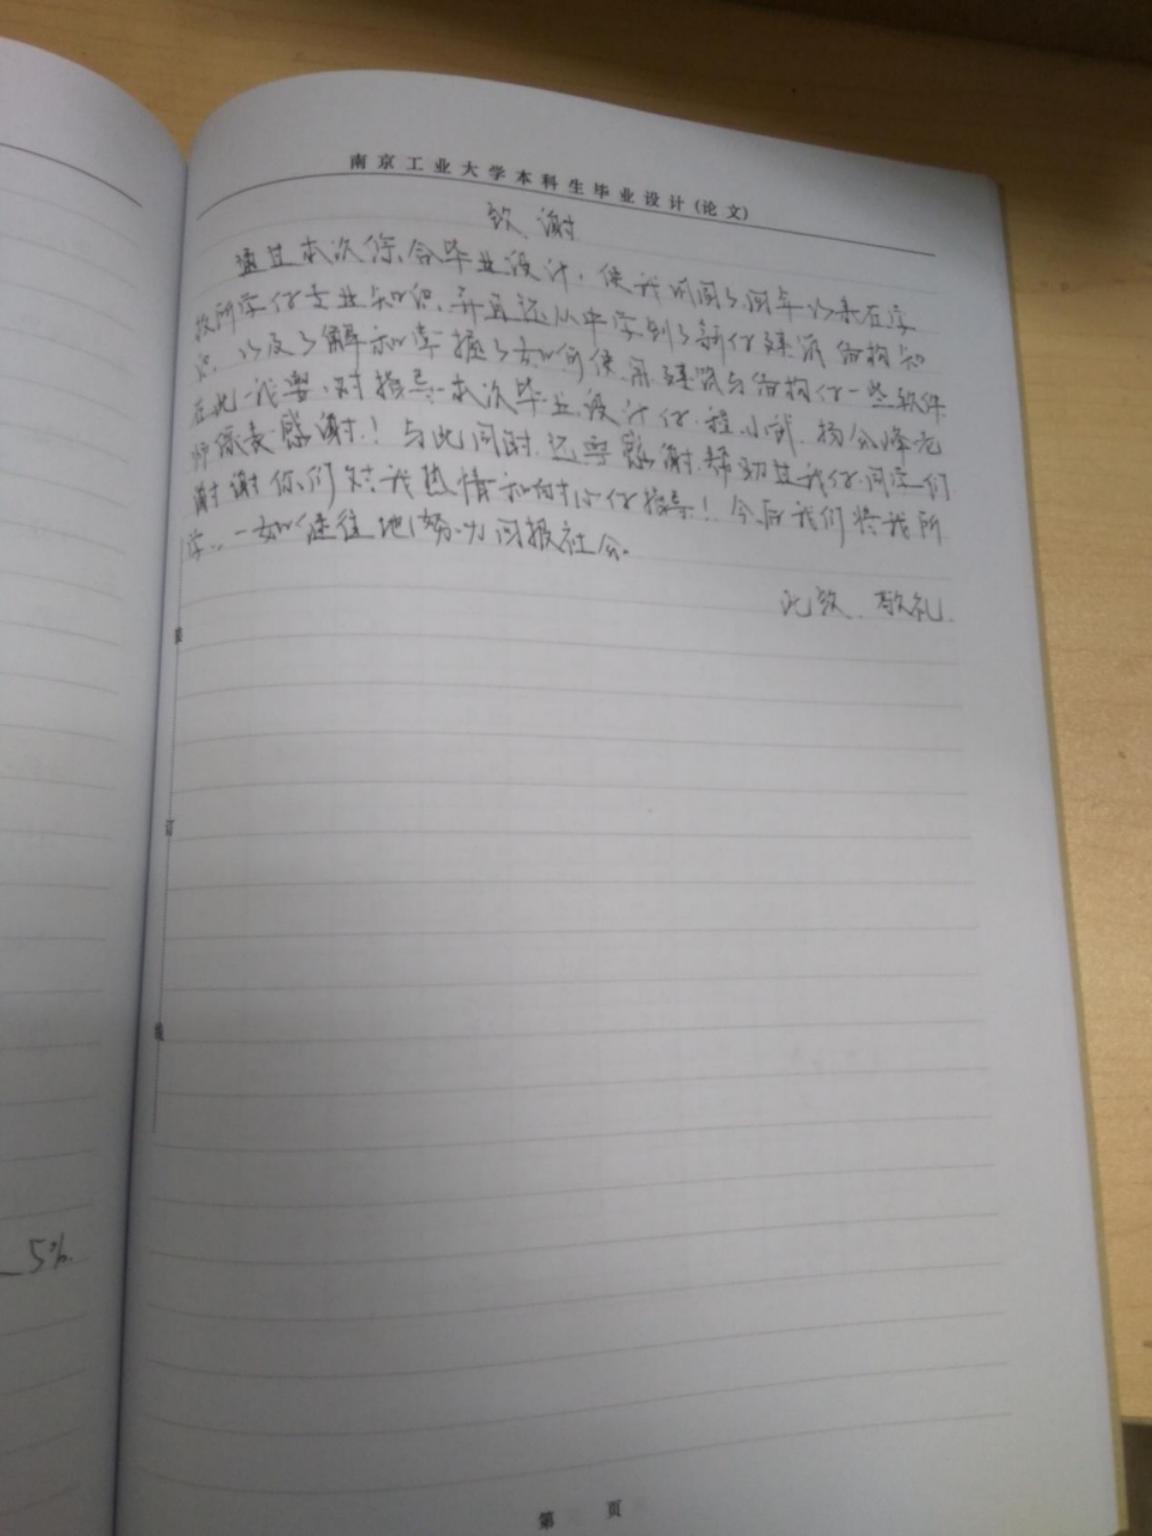 南京工业大学本科生毕业设计(论文)
致谢
通过本次综合毕业设计,使我巩固了四年以来在学
校所学的专业知识,并且还从中学到了新的建筑结构知
识,以及了解和掌握了如何使用建筑与结构的一些软件
在此我要对指导本次毕业设计的程小武、杨公峰老
师深表感谢!与此同时还要感谢帮助过我的同学们
谢谢你们对我热情和耐心的指导!今后我们将我所
学,一如既往地努力回报社会。
此致、敬礼
装
订
线
5%
第 页